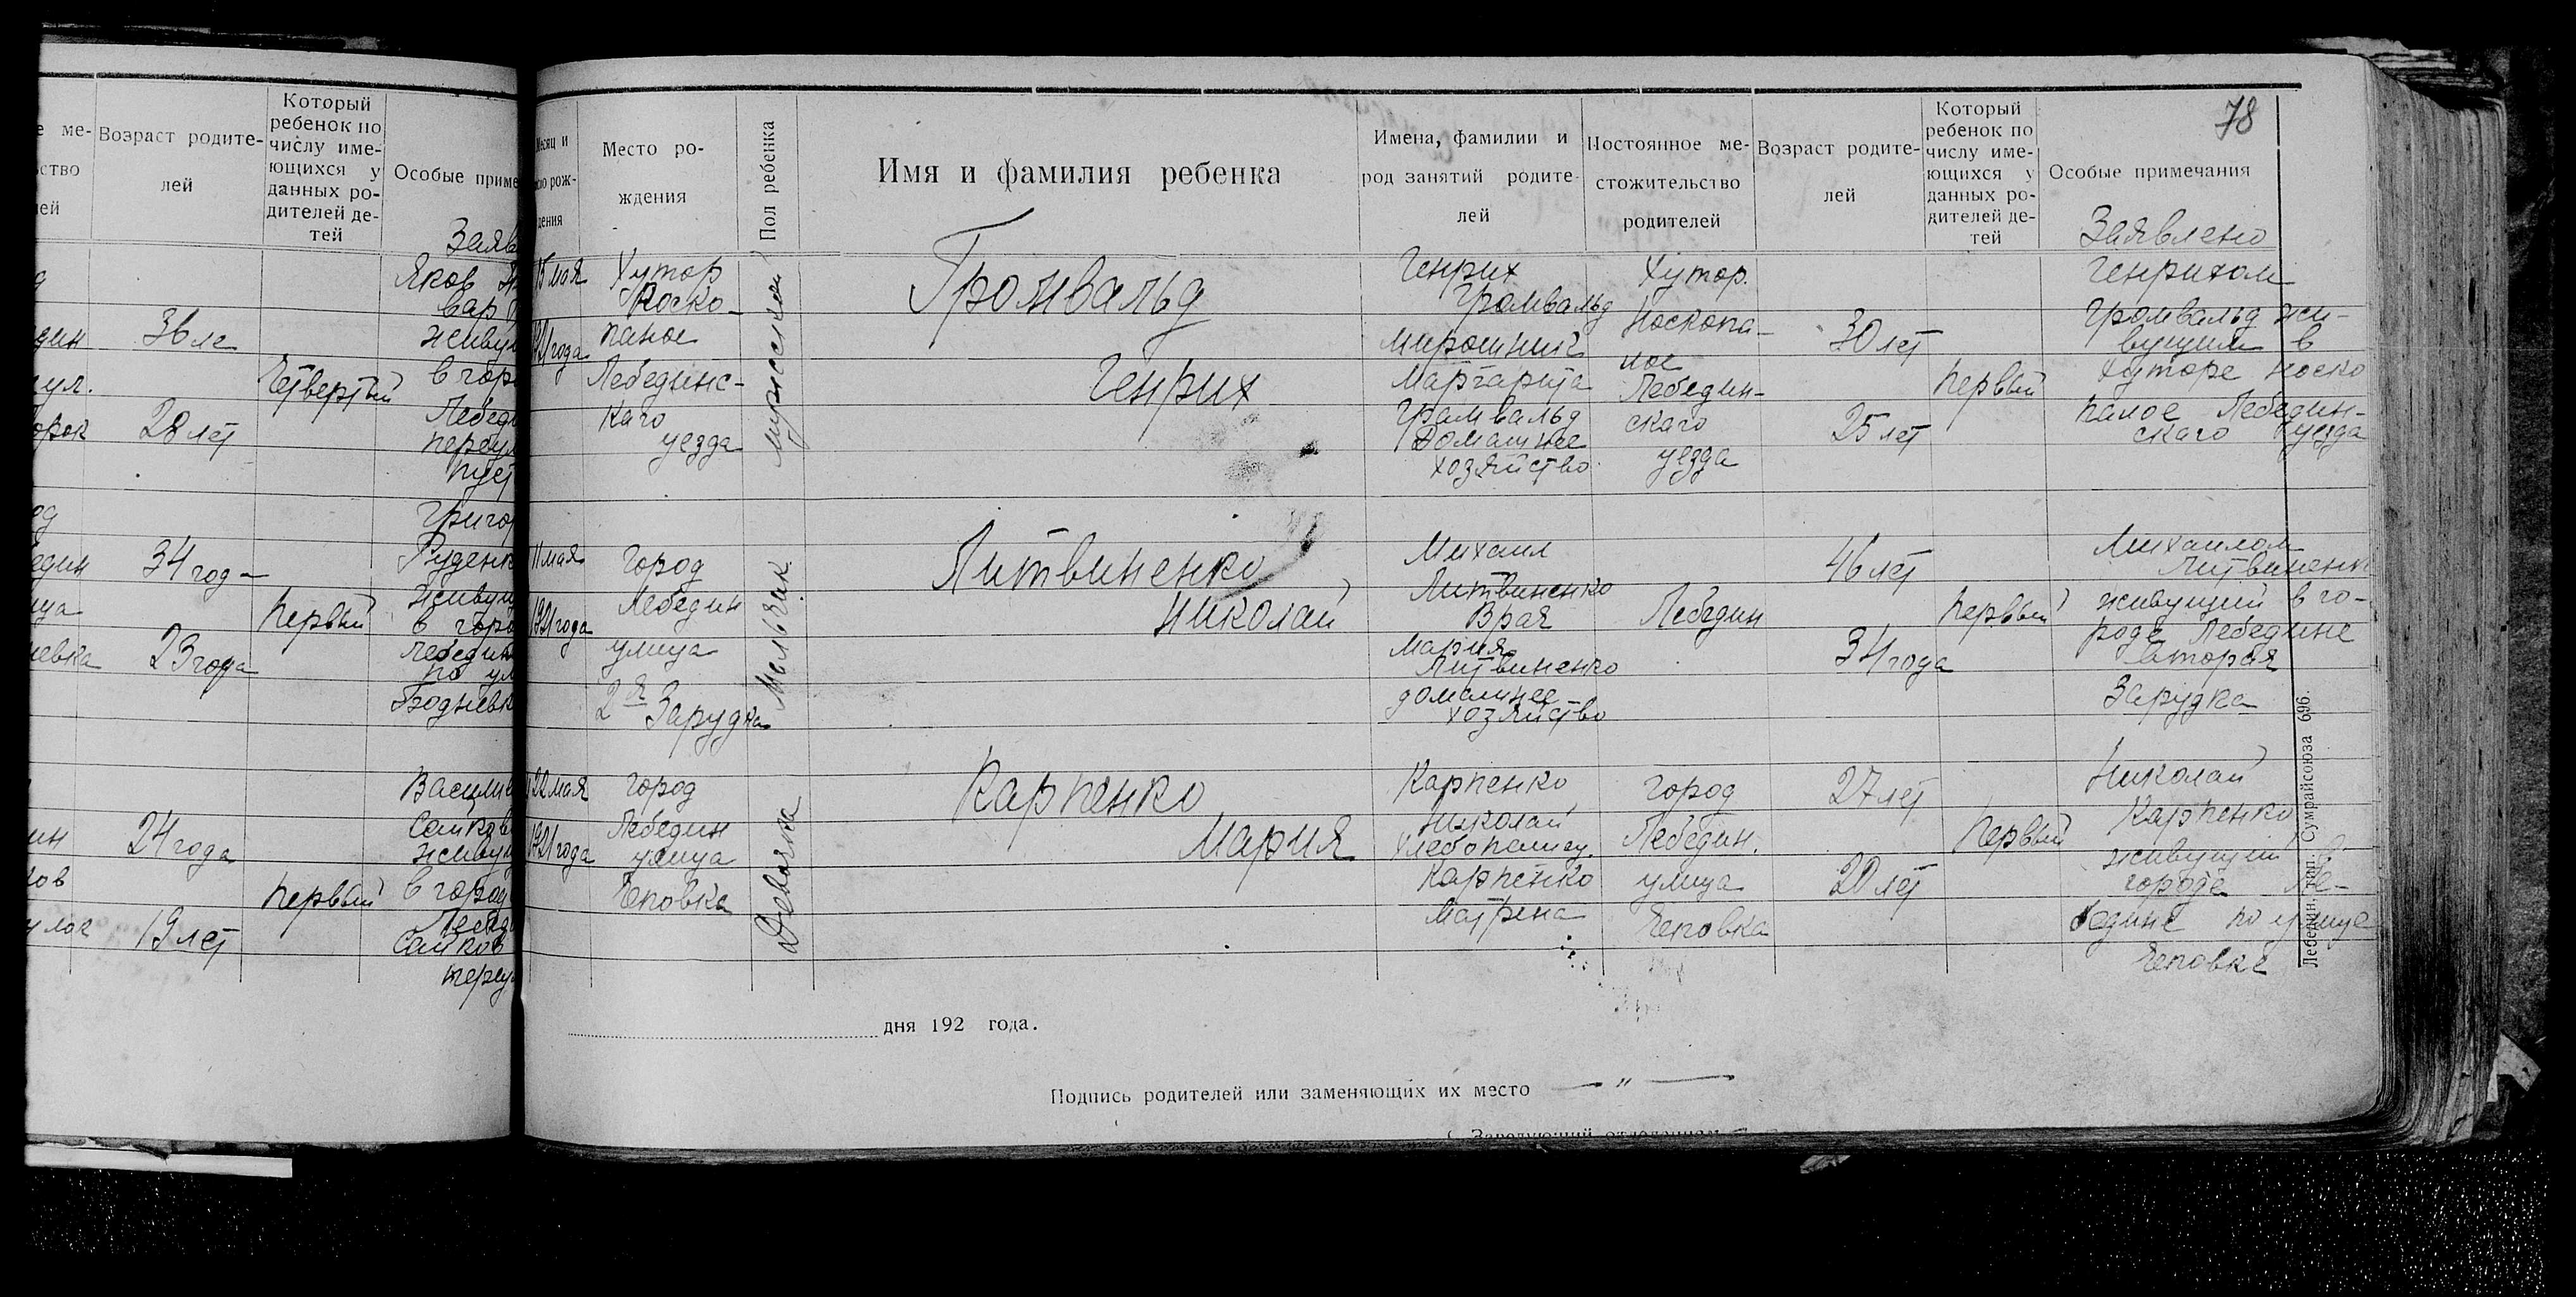 е ме-
ство
лей
Возраст родите-
лей
Который
ребенок по
числу име-
ющихся у
данных ро-
дителей де-
тей
Особые приме
Заяв
Яков
вар
живущ
в гор
Лебед
переул
пуст
дин
36 ле
ул.
Четвертый
28 лет
Григо
Руденк
живущ
в горо
Лебедин
по ул
един
34 год
Первый
23 года
Василие
Сайков
живущ
в город
Лебед
Сайков
переу
ин
24 года
ков
Первый
улок
19 лет
78
Месяц и
число рож-
дения
Место ро-
ждения
Пол ребенка
Имя и фамилия ребенка
Имена, фамилии и
род занятий родите-
лей
Постоянное ме-
стожительство
родителей
Возраст родите-
лей
Который
ребенок по
числу име-
ющихся у
данных ро-
дителей де-
тей
Особые примечания
Заявлено
15 мая
1921 года
Хутор
Носко-
паное
Лебединс-
каго
уезда
мужеской
Громвальд
Генрих
Генрих
Громвальд
Мирошник
Маргарита
Громвальд
Домашнее
хозяйство
Хутор
Носкопа-
ное
Лебедин-
скаго
уезда
30 лет
25 лет
Первый
Генрихом
Громвальд жи-
вущим в
Хуторе Носко
паное Лебедин-
скаго уезда
11 мая
1921 года
город
Лебедин
улица
2я Зарудка
Мальчик
Литвиненко
Николай
Михаил
Литвиненко
Врач
Мария
Литвиненко
домашнее
хозяйство
Лебедин
46 лет
34 года
Первый
Михаилом
Литвиненк
живущий в го-
роде Лебедине
вторая
Зарудка
22 мая
1921 года
город
Лебедин
улица
Чеповка
Девочка
Карпенко
Мария
Карпенко
Николай
Карпенко
Матрена
город
Лебедин.
улица
Чеповка
27 лет
20 лет
Первый
Николай
Карпенко
живущий в
городе Ле-
бедине по улице
Чеповке
Лебедин. тип. Сумрайсоюза 696.
дня 192 года.
Подпись родителей или заменяющих их место — " —